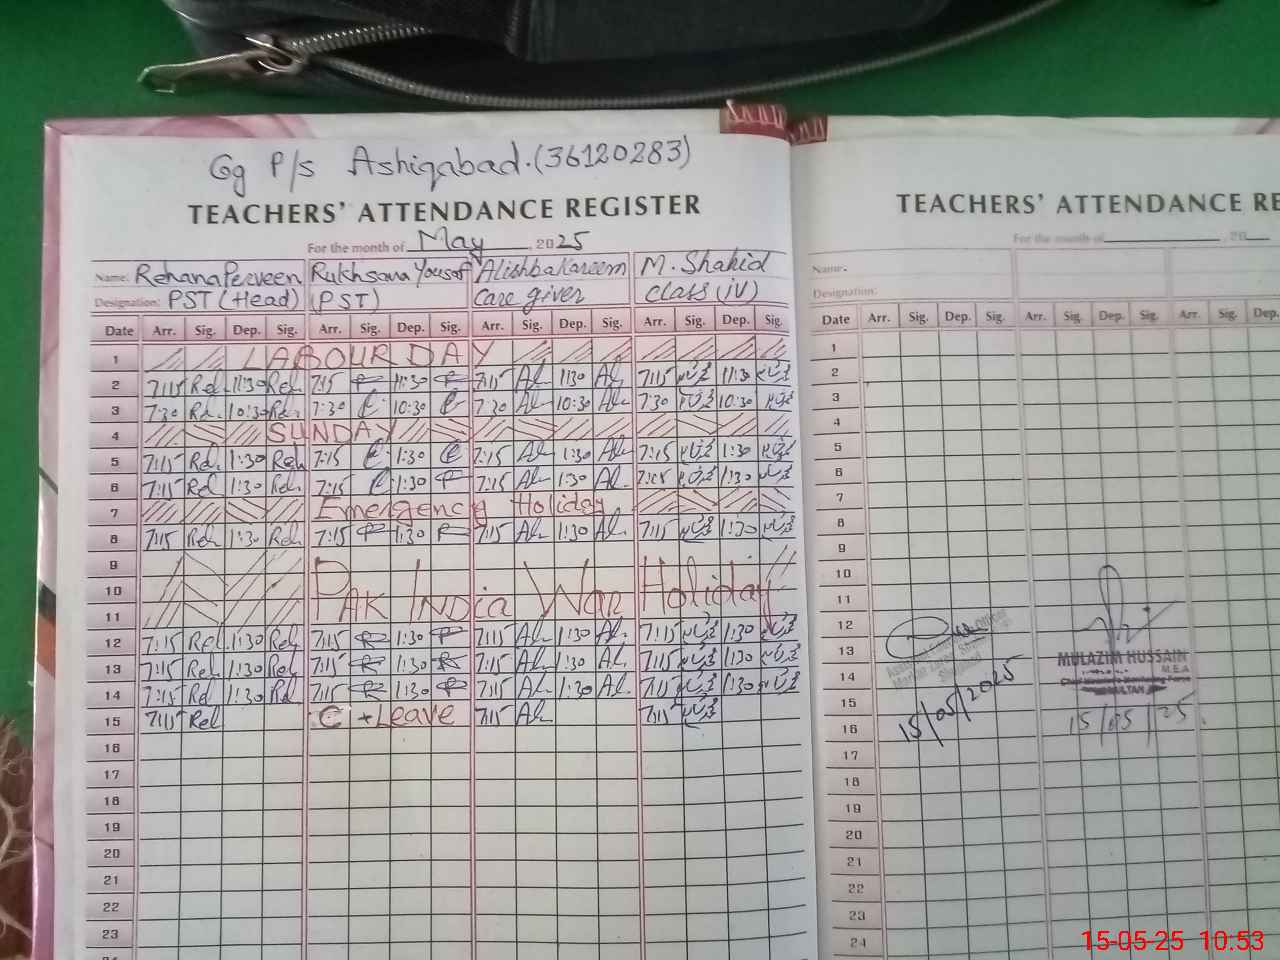 Gg P/s Ashiqabad.(36120283)
TEACHERS' ATTENDANCE REGISTER
For the month of May, 2025
Name: Rehana Perveen Rukhsana Yousaf Alishba Kareem M. Shahid
Designation: PST (Head) (PST) Care giver Class (iv)
Date Arr. Sig. Dep. Sig. Arr. Sig. Dep. Sig. Arr. Sig. Dep. Sig. Arr. Sig. Dep. Sig.
1 LABOUR DAY
2 7:15 Reh 11:30 Reh 7:15 11:30 7:15 Al 1:30 Al 7:15 11:30
3 7:30 Reh 10:30 Reh 7:30 10:30 7:30 Al 10:30 Al 7:30 10:30
4 SUNDAY
5 7:15 Reh 1:30 Reh 7:15 1:30 7:15 Al 1:30 Al 7:15 1:30
6 7:15 Reh 1:30 Reh 7:15 1:30 7:15 Al 1:30 Al 7:15 1:30
7 Emergency Holiday
8 7:15 Reh 1:30 Reh 7:15 1:30 7:15 Al 1:30 Al 7:15 1:30
9
10 PAK INDIA War Holiday
11
12 7:15 Reh 1:30 Reh 7:15 1:30 7:15 Al 1:30 Al 7:15 1:30
13 7:15 Reh 1:30 Reh 7:15 1:30 7:15 Al 1:30 Al 7:15 1:30
14 7:15 Reh 1:30 Reh 7:15 1:30 7:15 Al 1:30 Al 7:15 1:30
15 7:15 Reh C + Leave 7:15 Al 7:15
16
17
18
19
20
21
22
23
TEACHERS' ATTENDANCE RE
For the month of , 20
Name.
Designation:
Date Arr. Sig. Dep. Sig. Arr. Sig. Dep. Sig. Arr. Sig. Dep.
1
2
3
4
5
6
7
8
9
10
11
12
13
14
15
16
17
18
19
20
21
22
23
24
15/05/2025
MULAZIM HUSSAIN
M.E.A
MULTAN
15/05/25.
15-05-25 10:53